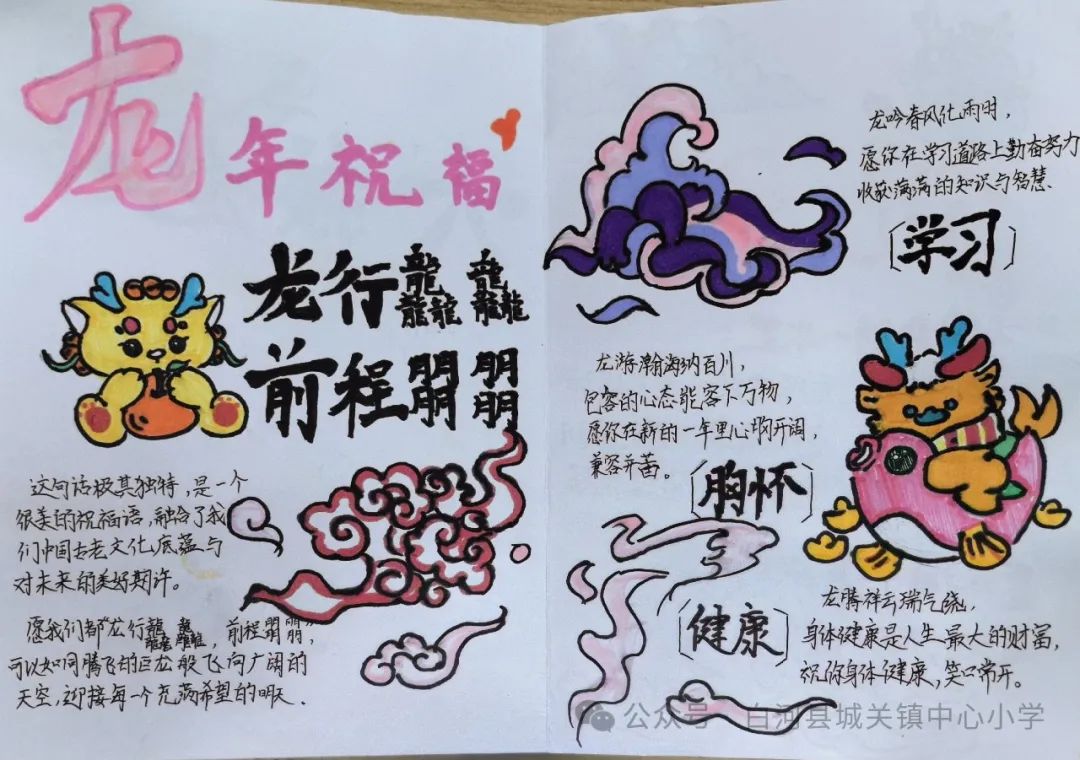 龙年祝福
龙行龘龘
前程朤朤
这句话极其独特，是一个
很美的祝福语，融合了我
们中国古老文化底蕴与
对未来的美好期许。
愿我们都“龙行龘龘，前程朤朤”，
可以如同腾飞的巨龙般飞向广阔的
天空，迎接每一个充满希望的明天.
龙吟春风化雨时，
愿你在学习道路上勤奋努力
收获满满的知识与智慧.
[学习]
龙游瀚海纳百川，
包容的心态能容下万物，
愿你在新的一年里心胸开阔，
兼容并蓄。
[胸怀]
[健康]
龙腾祥云瑞气绕，
身体健康是人生最大的财富，
祝你身体健康，笑口常开。
公众号 · 白河县城关镇中心小学